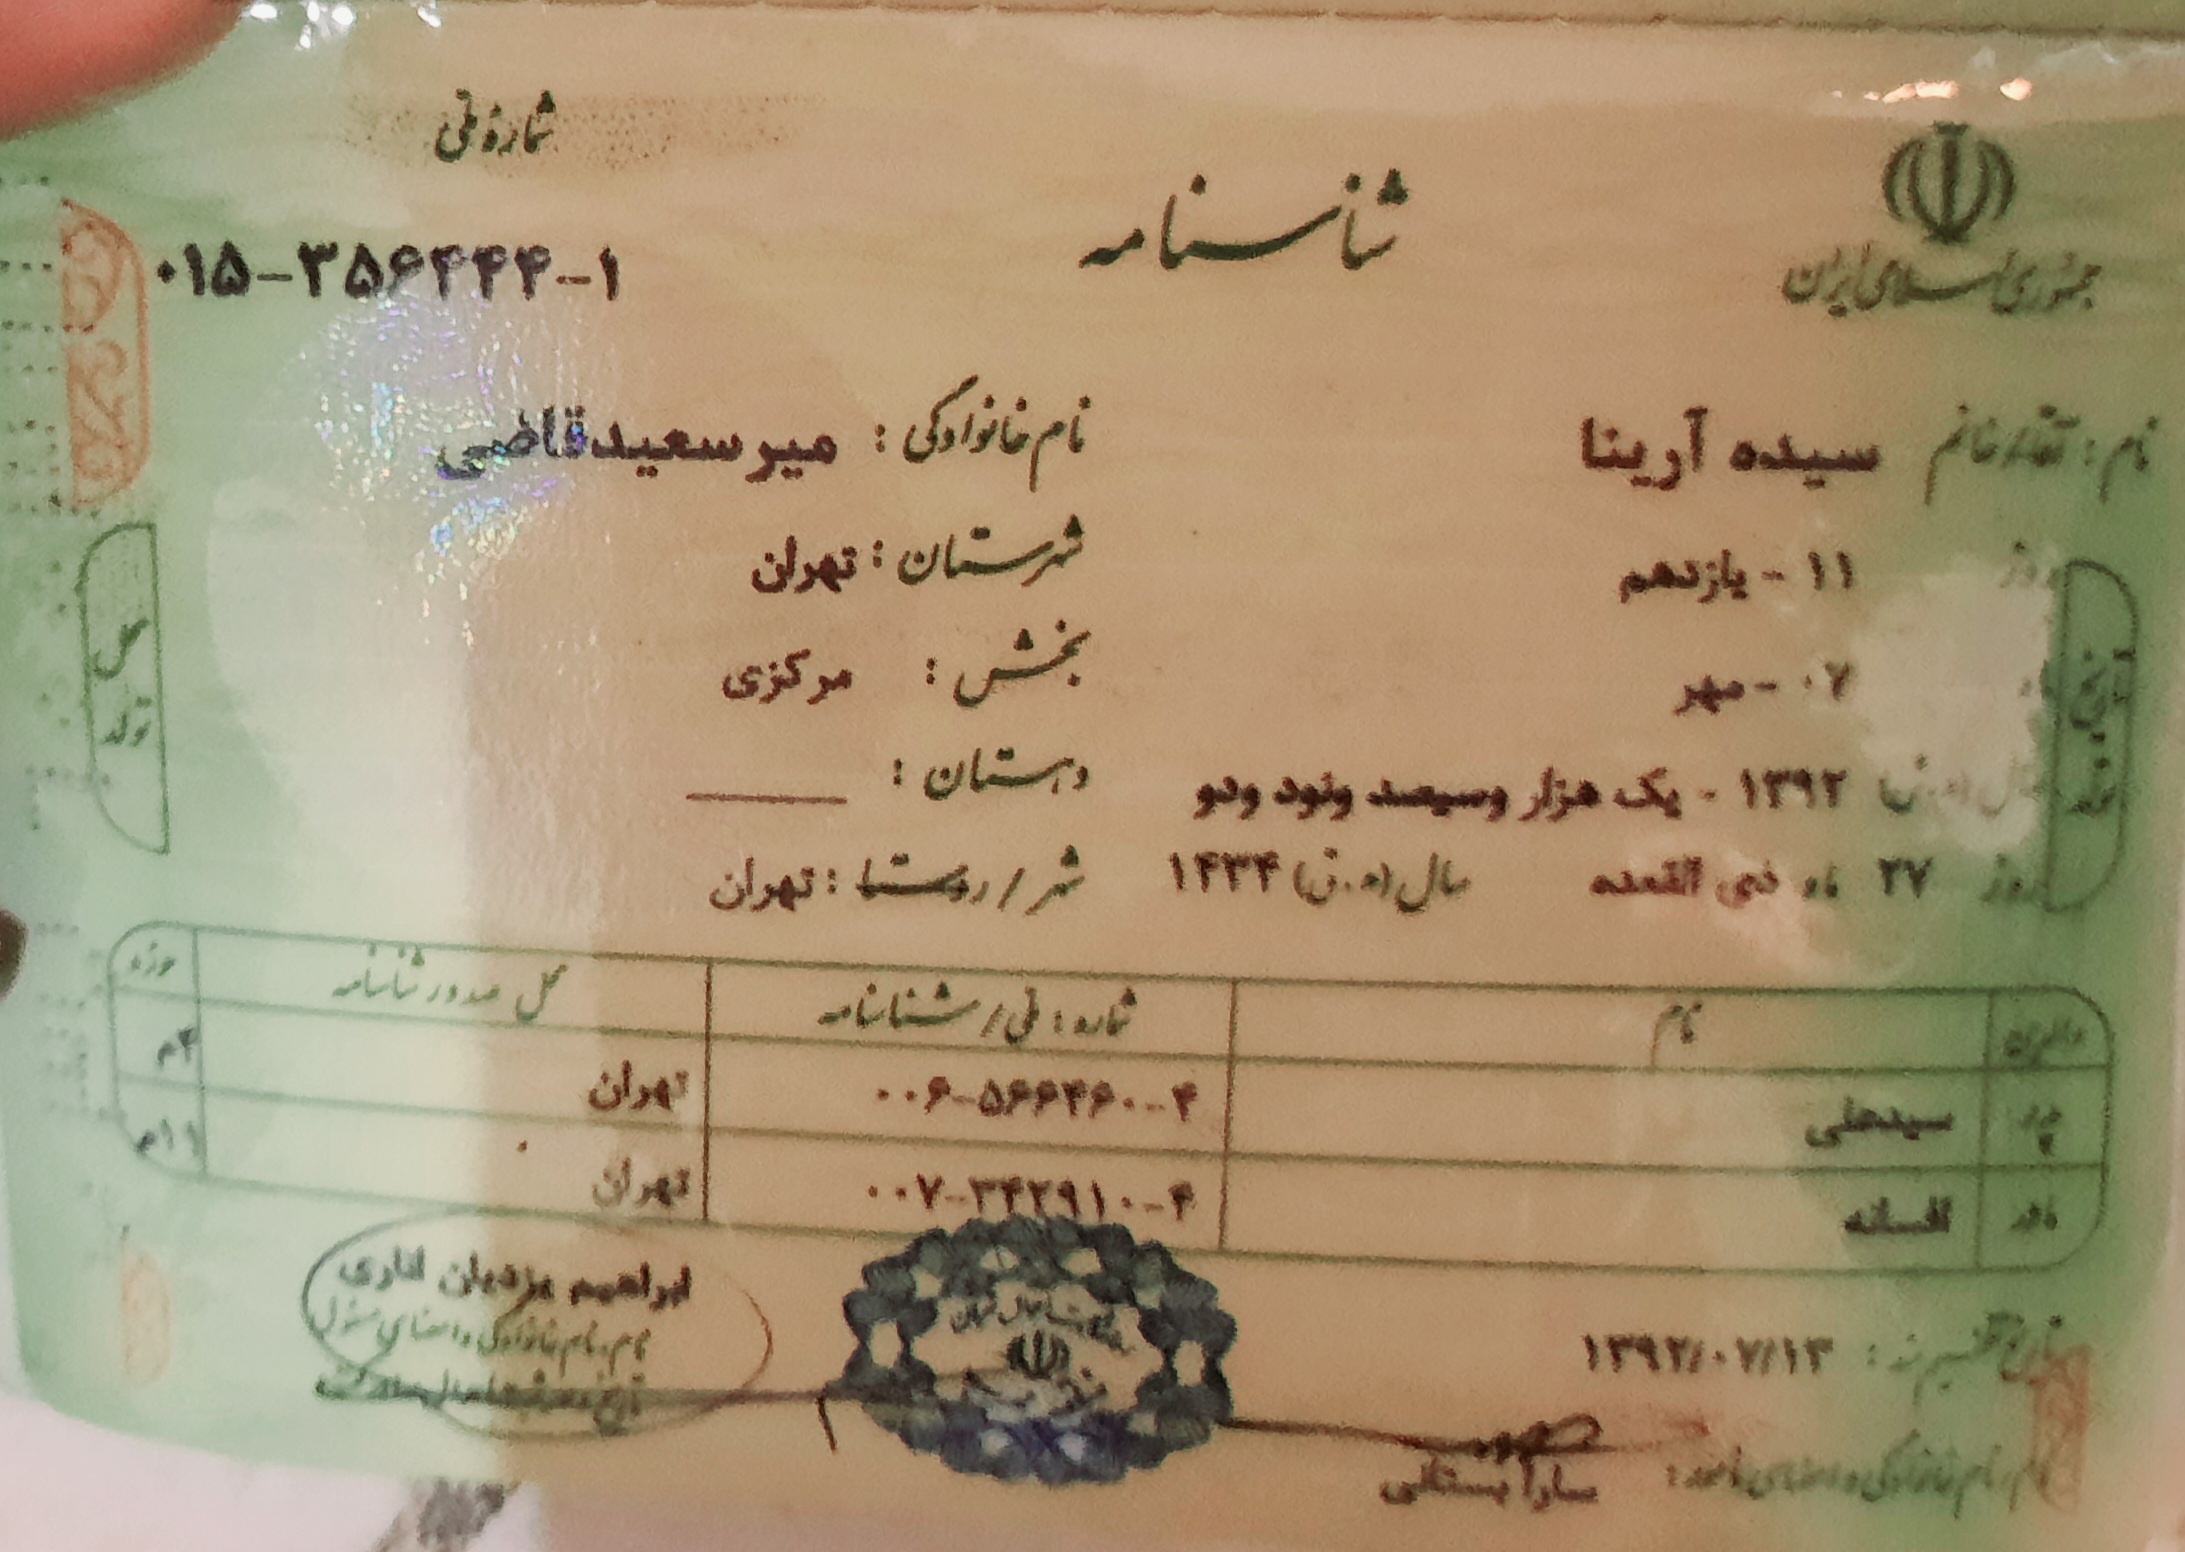 جمهوری اسلامی ایران
شناسنامه
شماره ملی
۰۱۵-۳۵۶۴۴۴-۱
نام : آقا/خانم سیده آرینا
نام خانوادگی : میرسعیدقاضی
روز ۱۱ - یازدهم
شهرستان : تهران
۰۷ - مهر
بخش : مرکزی
سال (ه.ش) ۱۳۹۲ - یک هزار وسیصد ونود ودو
دهستان :
روز ۲۷ ماه ذی القعده سال (ه.ق) ۱۴۳۴
شهر / روستا : تهران
تاریخ تولد
محل تولد
والدین نام شماره : ملی / شناسنامه محل صدور شناسنامه حوزه
پدر سیدعلی ۰۰۶-۵۶۶۴۶۰-۴ تهران ۴م
مادر افسانه ۰۰۷-۳۴۲۹۱۰-۴ تهران ۱۱م
تاریخ تنظیم سند : ۱۳۹۲/۰۷/۱۳
نام، نام خانوادگی و امضای مامور :
سارا بستانی
ابراهیم یزدیان اناری
نام، نام خانوادگی و امضای مسئول